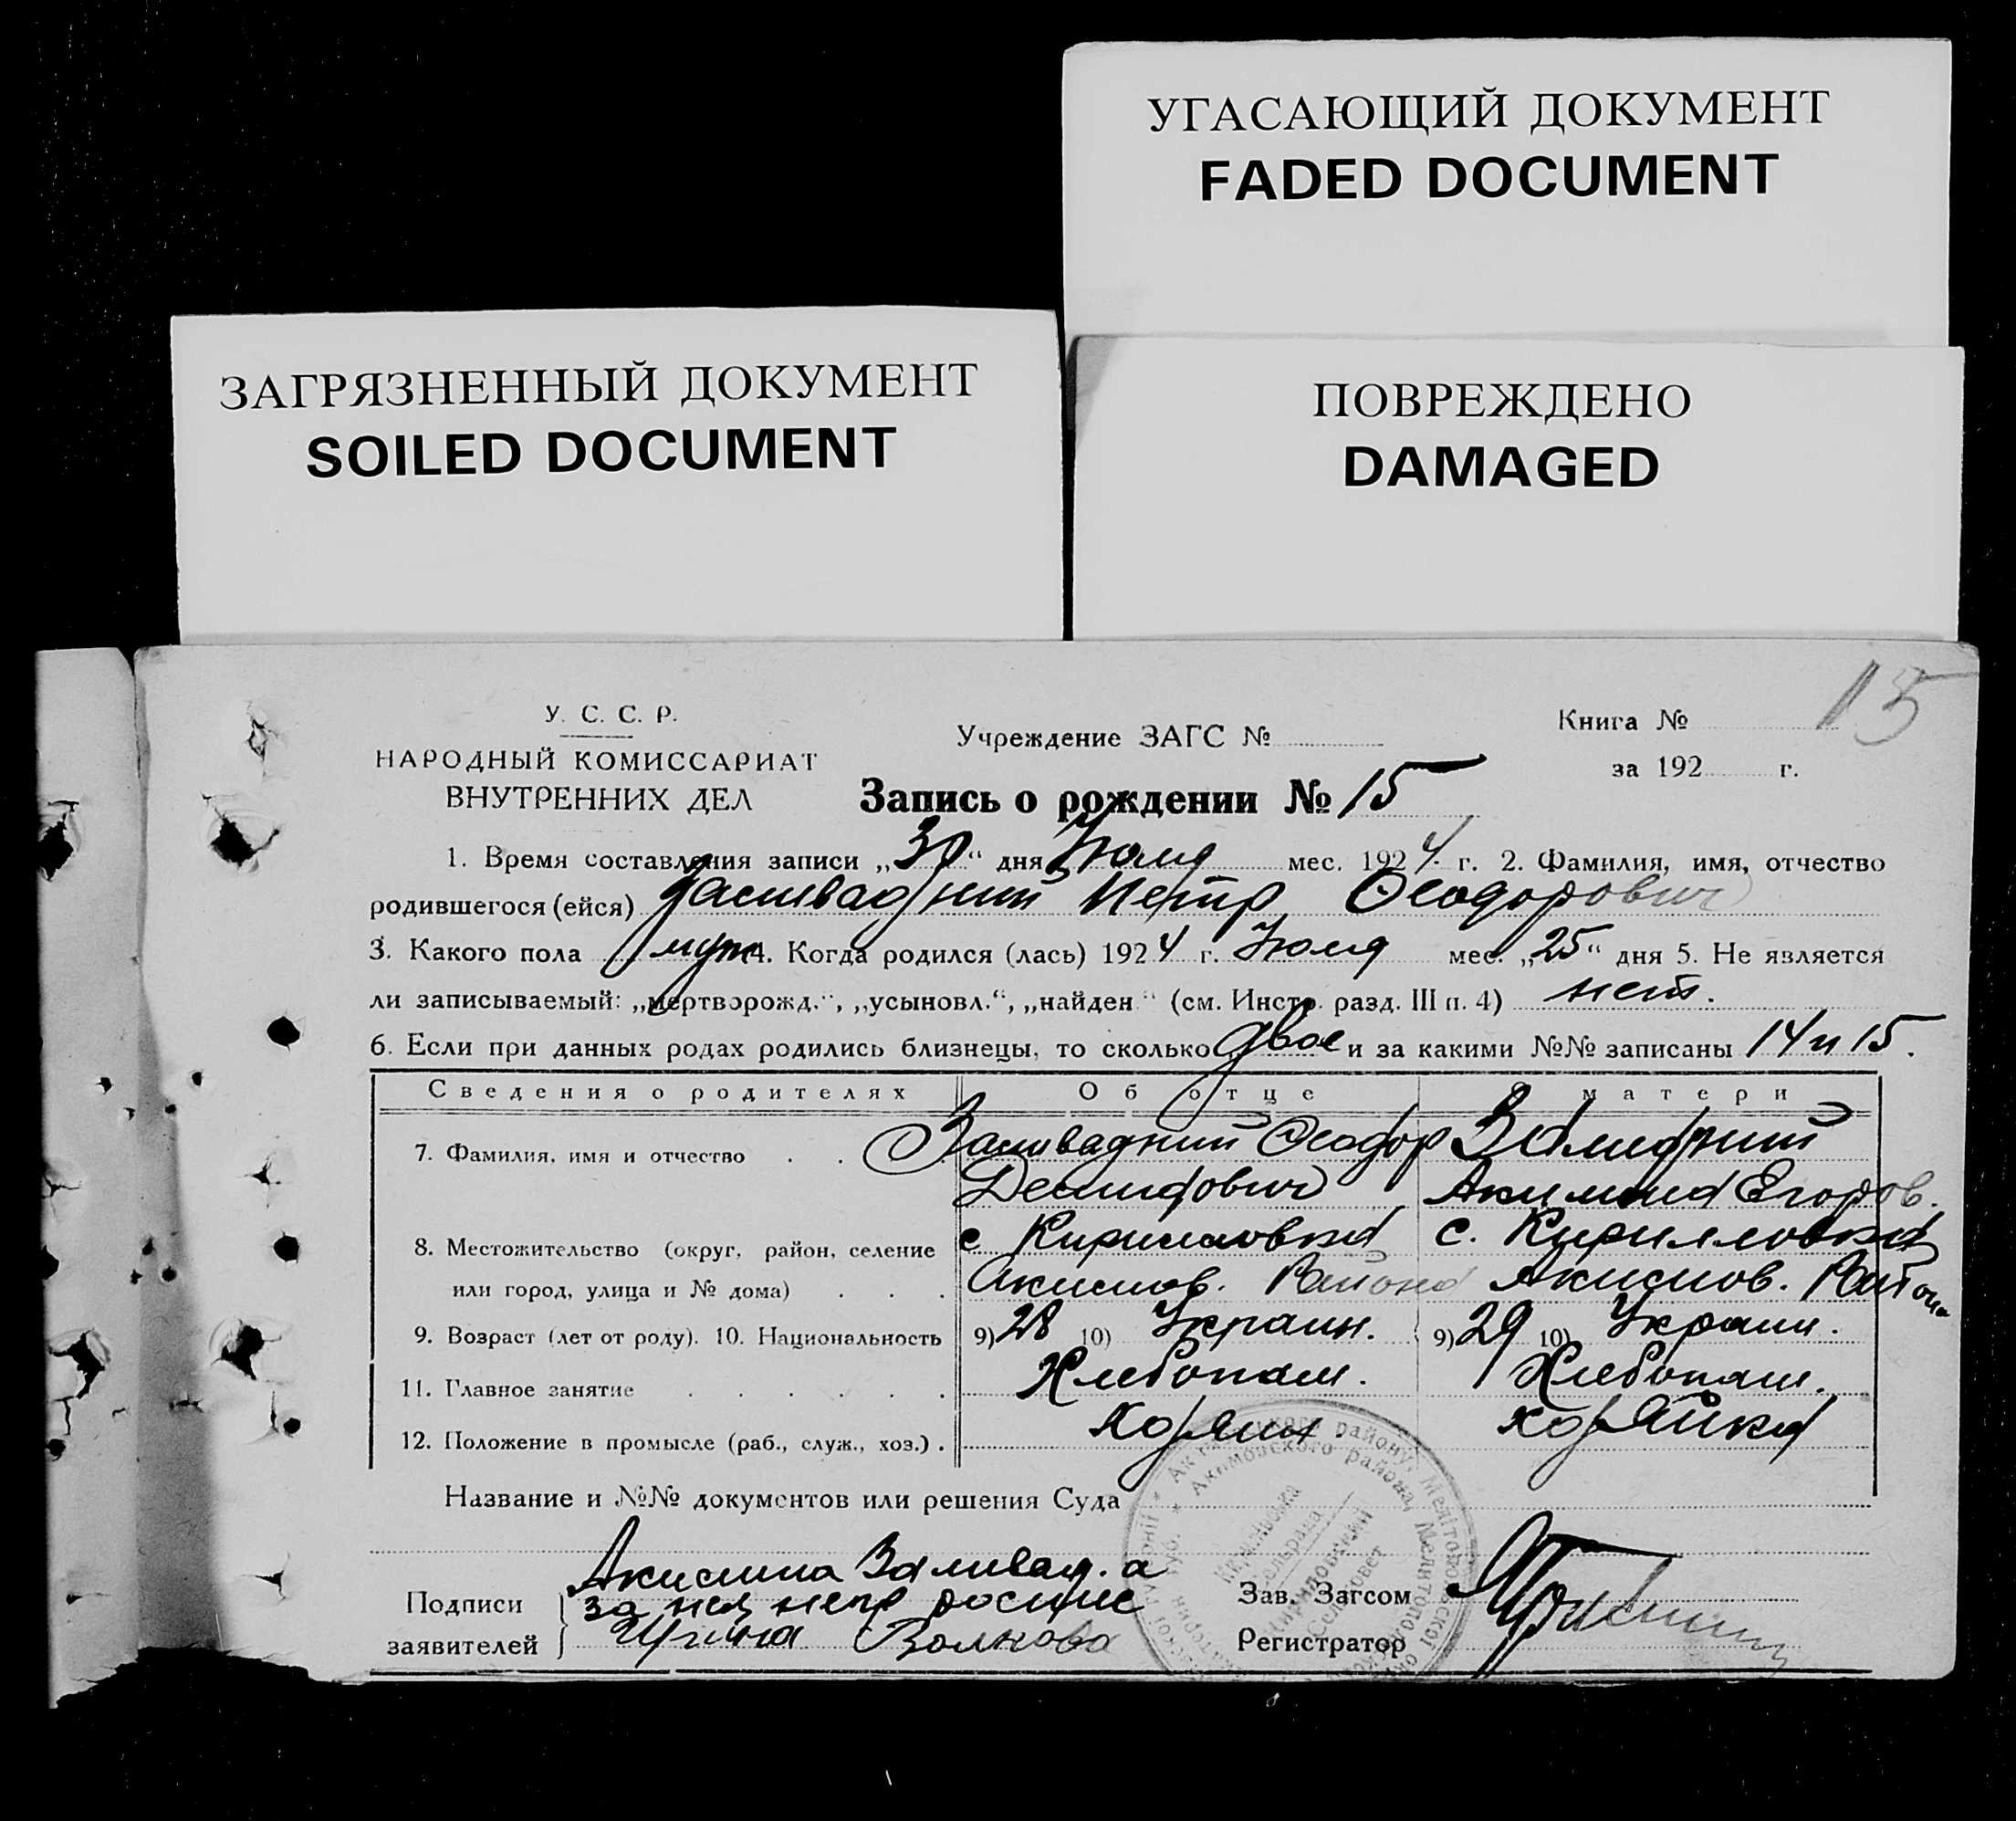 УГАСАЮЩИЙ ДОКУМЕНТ
FADED DOCUMENT
ЗАГРЯЗНЕННЫЙ ДОКУМЕНТ
SOILED DOCUMENT
ПОВРЕЖДЕНО
DAMAGED
15
У. С. С. Р.
НАРОДНЫЙ КОМИССАРИАТ
ВНУТРЕННИХ ДЕЛ
Учреждение ЗАГС №
Книга №
за 192 г.
Запись о рождении № 15
1. Время составления записи „30“ дня Июля мес. 1924 г. 2. Фамилия, имя, отчество
родившегося (ейся) Петр Феодорович
3. Какого пола муж 4. Когда родился (лась) 1924 г. Июля мес. „25“ дня 5. Не является
ли записываемый: „мертворожд.“, „усыновл.“, „найден“ (см. Инстр. разд. III п. 4) нет.
6. Если при данных родах родились близнецы, то сколько двое и за какими №№ записаны 14 и 15.
Сведения о родителях Об отце О матери
7. Фамилия, имя и отчество . . Феодор
Демидович Акилина Егоров.
8. Местожительство (округ, район, селение с Кирилловка с. Кирилловка
или город, улица и № дома) . . . Акимов. Района Акимов. Района
9. Возраст (лет от роду). 10. Национальность 9) 28 10) Украин. 9) 29 10) Украин.
11. Главное занятие . . . . . . Хлебопаш. Хлебопаш.
12. Положение в промысле (раб., служ., хоз.) . хозяин хозяйка
Название и №№ документов или решения Суда
Подписи
заявителей
за нея негр росписс
Ирина Волкова
Зав. Загсом
Регистратор
Акимовского района, Мелитопольск
Кирилловский
Сельсовет